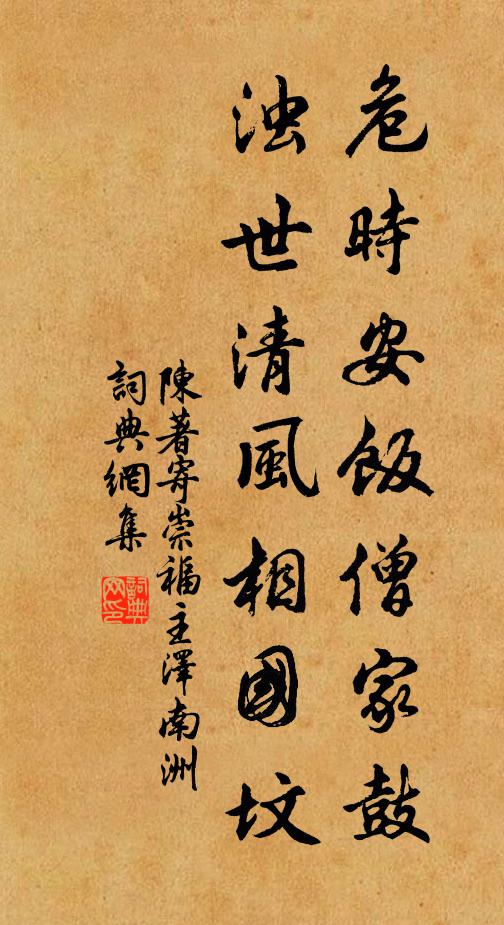 危時安飯僧家鼓
浊世清風相國坟
陳著寄崇福主澤南洲
詞典網集
詞典網印